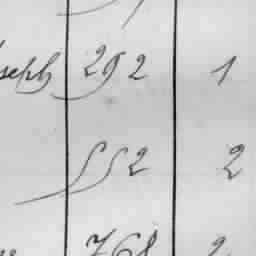 seph 292 1
552 2
768 2